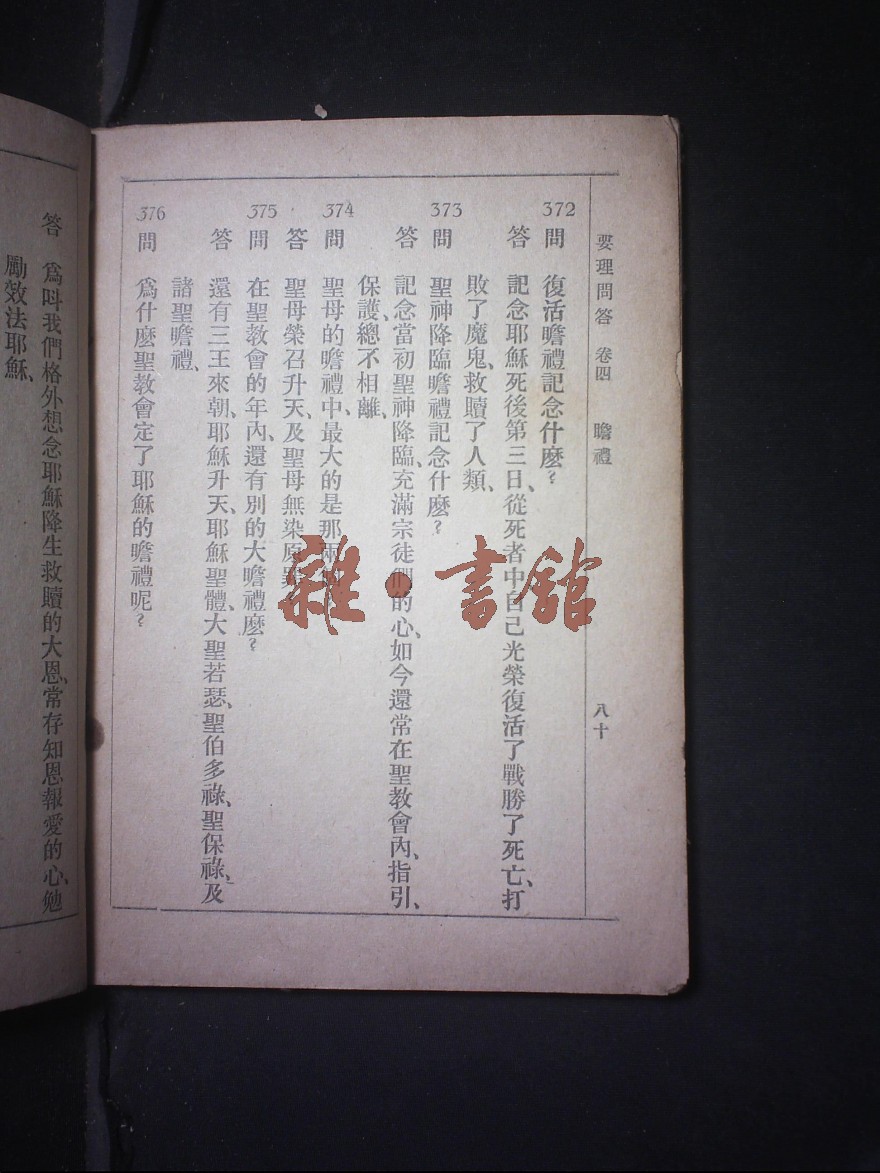 要理問答 卷四 瞻禮 八十
372 問 復活瞻禮記念什麼?
答 記念耶穌死後第三日、從死者中自己光榮復活了戰勝了死亡、打
敗了魔鬼、救贖了人類、
373 問 聖神降臨瞻禮記念什麼?
答 記念當初聖神降臨、充滿宗徒們的心、如今還常在聖教會內、指引、
保護、總不相離、
374 問 聖母的瞻禮中、最大的是那兩
答 聖母榮召升天、及聖母無染原罪
375 問 在聖教會的年內、還有別的大瞻禮麼?
答 還有三王來朝、耶穌升天、耶穌聖體、大聖若瑟、聖伯多祿、聖保祿、及
諸聖瞻禮、
376 問 爲什麼聖教會定了耶穌的瞻禮呢?
答 爲叫我們格外想念耶穌降生救贖的大恩、常存知恩報愛的心、勉
勵效法耶穌、
雜·書館